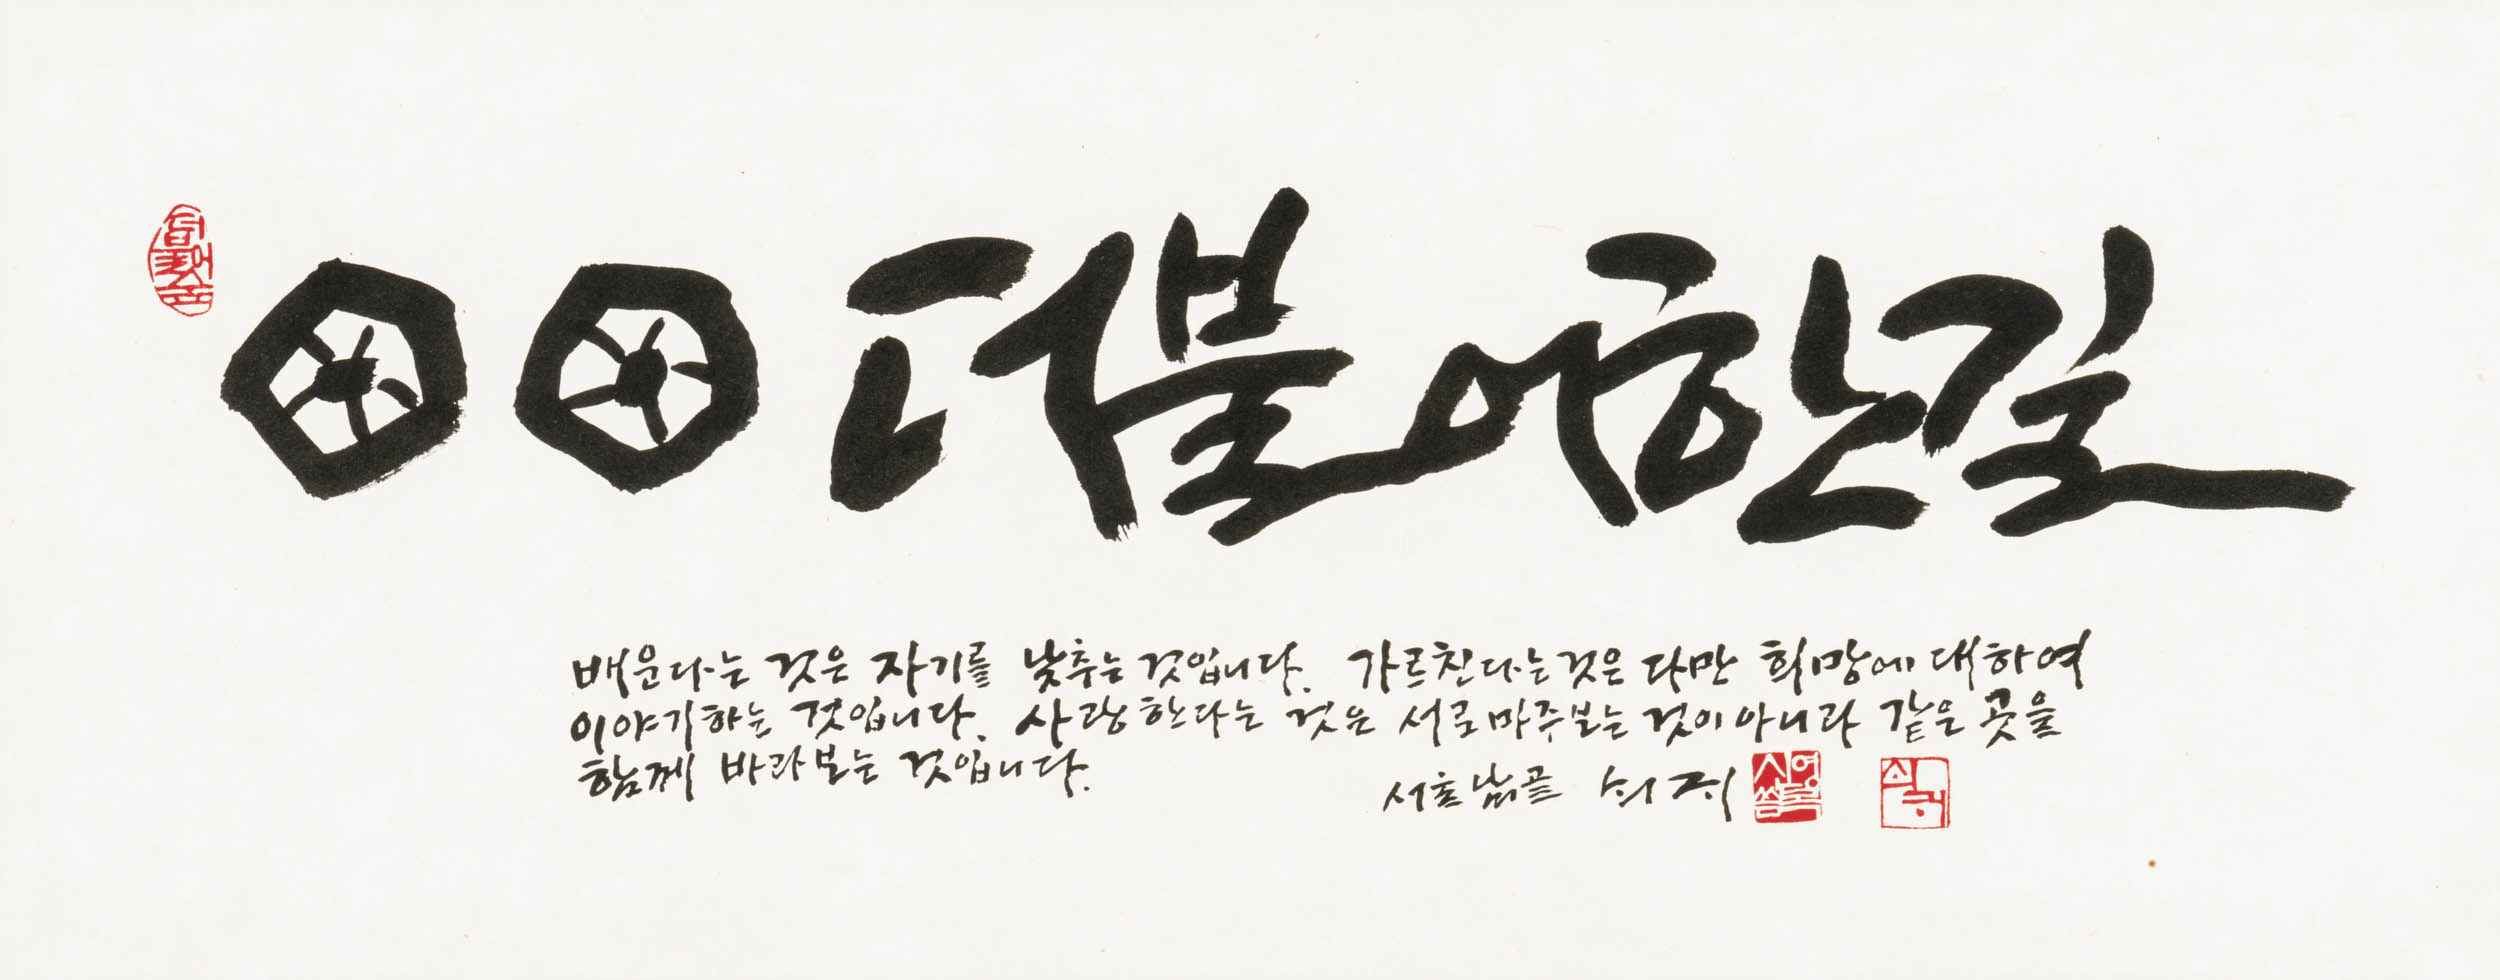 더불어한길
배운다는 것은 자기를 낮추는 것입니다. 가르친다는 것은 다만 희망에 대하여
이야기하는 것입니다. 사랑한다는 것은 서로 마주보는 것이 아니라 같은 곳을
함께 바라보는 것입니다.
서호남골 쇠귀